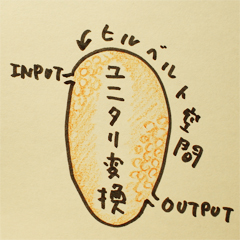 ヒルベルト空間
INPUT
ユニタリ変換
OUTPUT